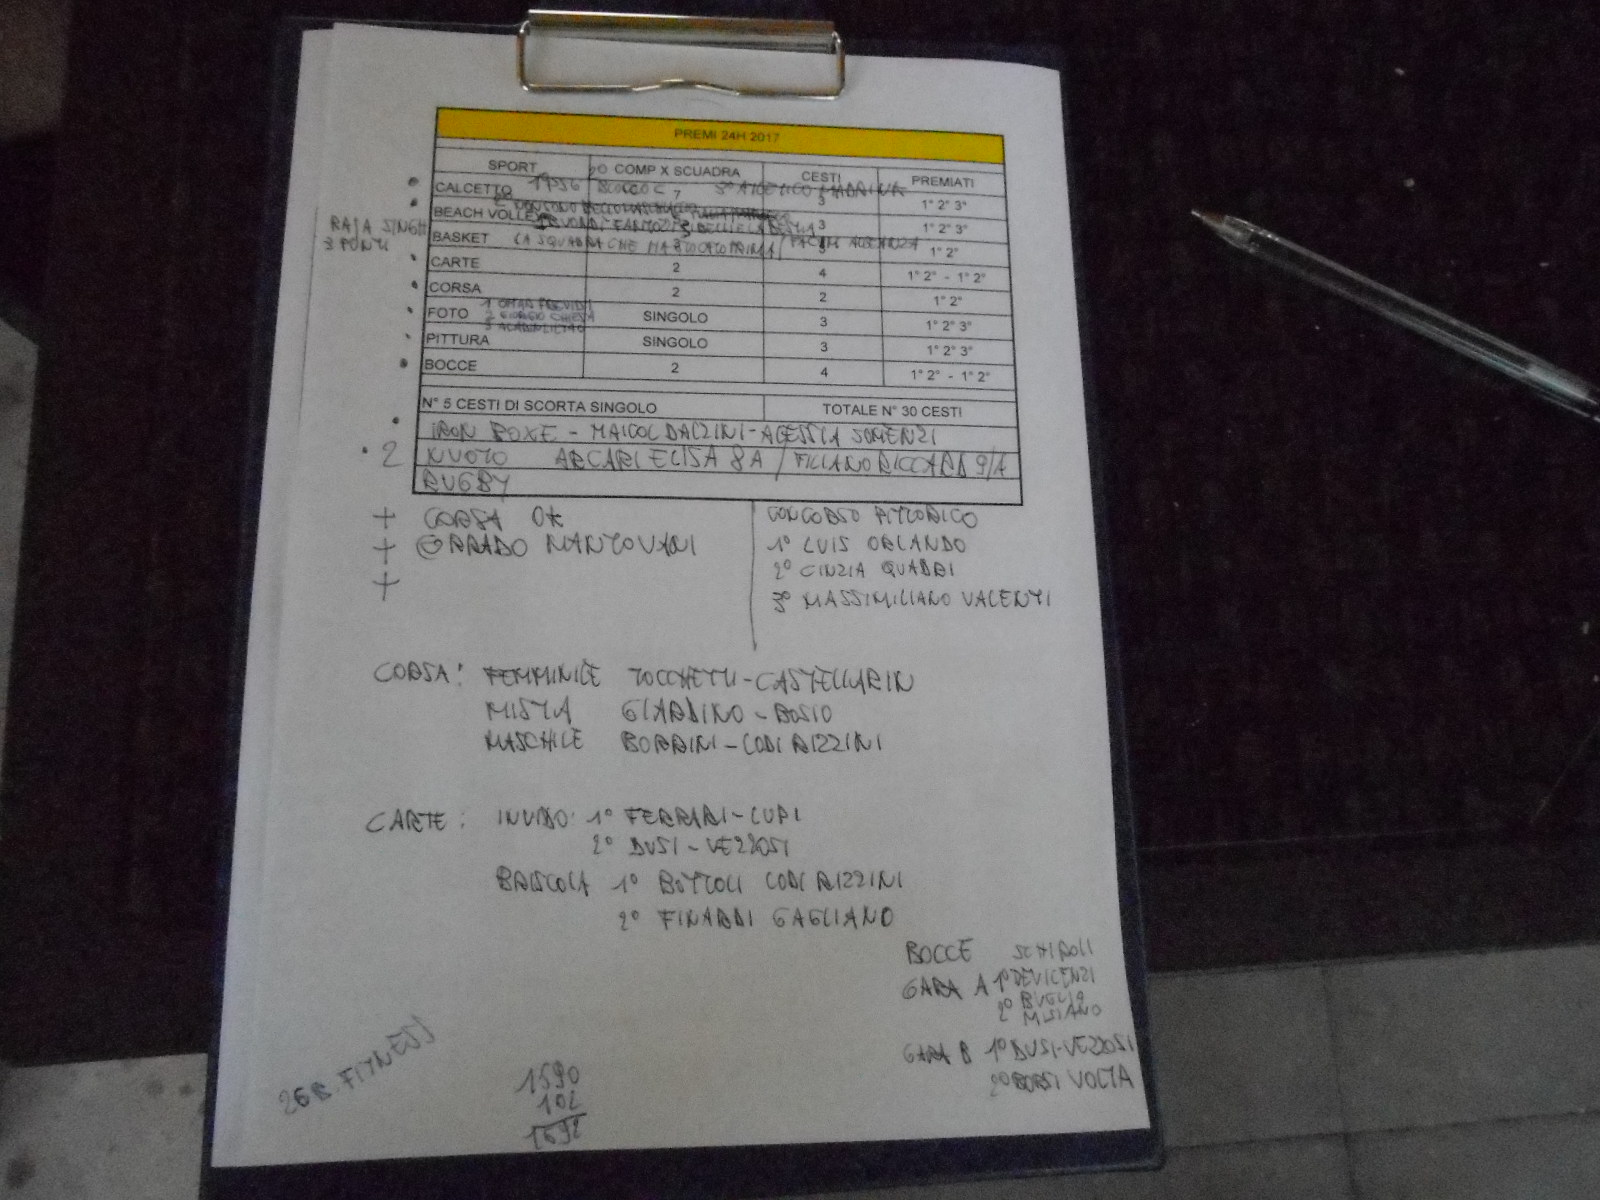 PREMI 24H 2017
SPORT N° COMP X SCUADRA CESTI PREMIATI
CALCETTO 7 3 1° 2° 3°
BEACH VOLLEY 3 1° 2° 3°
RAJA SINGH
3 PUNTI
BASKET LA SQUADRA CHE 1° 2°
CARTE 2 4 1° 2° - 1° 2°
CORSA 2 2 1° 2°
FOTO SINGOLO 3 1° 2° 3°
PITTURA SINGOLO 3 1° 2° 3°
BOCCE 2 4 1° 2° - 1° 2°
N° 5 CESTI DI SCORTA SINGOLO TOTALE N° 30 CESTI
IRON BOXE - MAICOL DALZINI - ALESSIA SOMENZI
2 NUOTO ARCARI ELISA 8A / RICCARDO 9/A
RUGBY
+ CORSA OK
+ CORRADO MANTOVANI
+
CONCORSO PITTORICO
1° LUIS ORLANDO
2° CINZIA QUADRI
3° MASSIMILIANO VALENTI
CORSA: FEMMINILE TOCCHETTI-CASTELLARIN
MISTA GIARDINO-BOSIO
MASCHILE BORRINI-CODI RIZZINI
CARTE: 1° FERRARI-LUPI
2° DUSI-VEZZOSI
BRISCOLA 1° BOTTOLI CODI RIZZINI
2° FINARDI GAGLIANO
BOCCE SCHIROLI
GARA A 1° DEVICENZI
2° BUGLIO
2° MISIANO
GARA B 1° DUSI-VEZZOSI
2° BORSI VOLTA
26 B. FITNESS
1590
102
1692